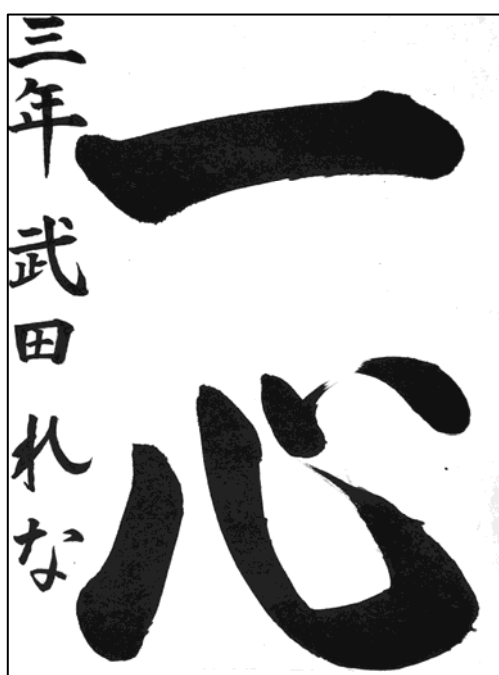 一心
三年 武田 れな